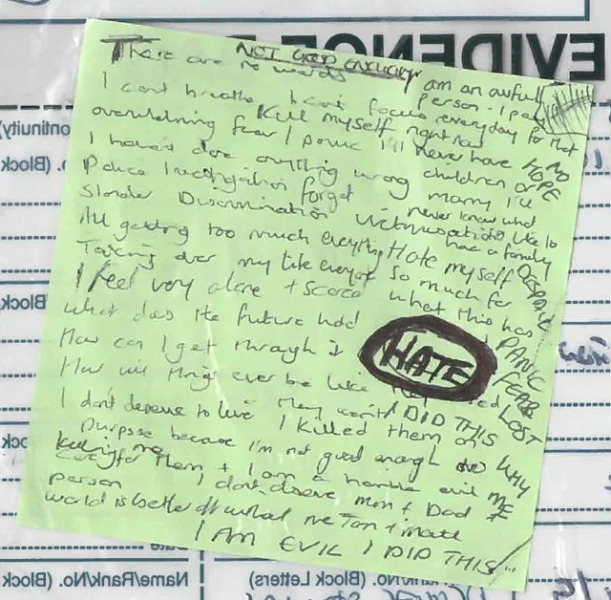 EVIDENCE
NOT GOOD ENOUGH
There are no words
I am an awful person
I can't breathe I can't focus
I pay everyday for that
Kill myself right now
overwhelming fear I panic I'll never have
children or marry I'll
NO HOPE
I haven't done anything wrong
never know what
Police Investigation forget
its like to have a family
Slander Discrimination Victimisation
All getting too much everything Hate myself
DESPAIR
Taking over my life everyone
so much for what this has
I feel very alone + scared
what does the future hold
HATE
PANIC
FEAR
LOST
How can I get through it
How will things ever be like
I DID THIS
WHY ME
I don't deserve to live I killed them on
purpose because I'm not good enough to
care for them + I am a horrible evil
killing me
person I don't deserve Mum + Dad
world is better off without me
I AM EVIL I DID THIS
Name/Rank/No. (Block
/Rank/No. (Block Letters)